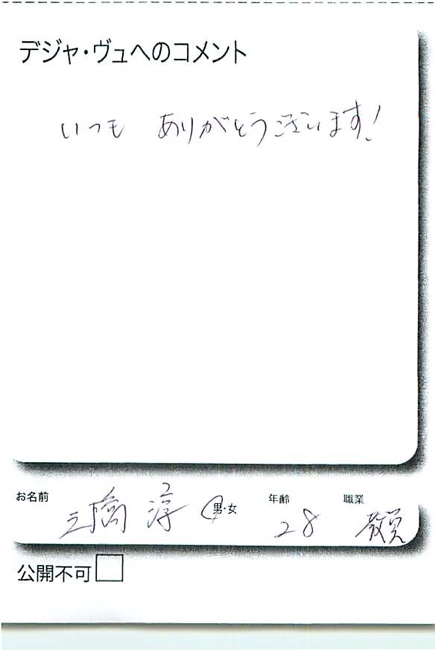 デジャ・ヴュへのコメント
いつも ありがとうございます!
お名前 三橋 淳 男・女 年齢 28 職業 教員
公開不可